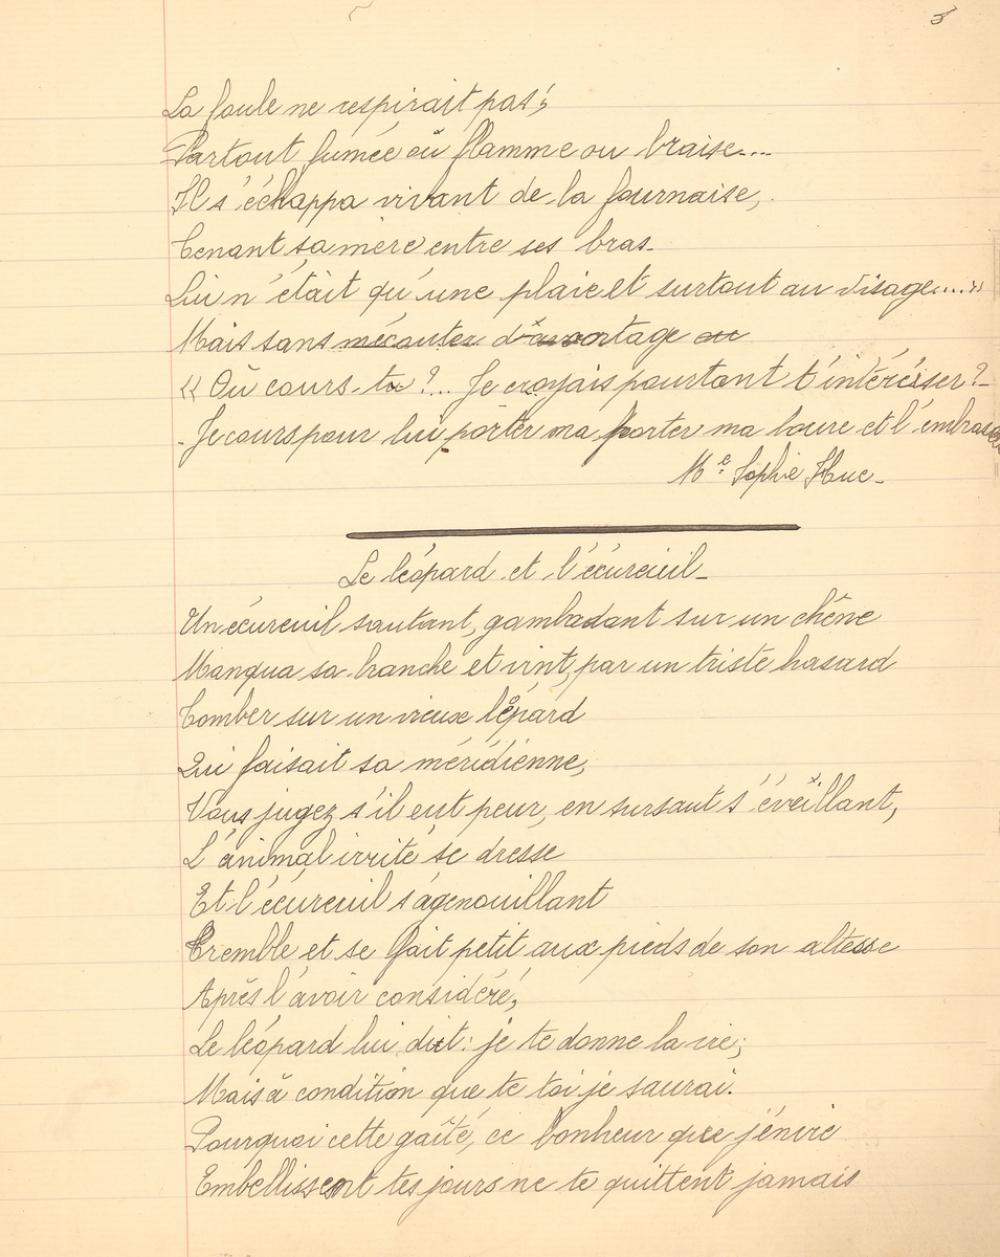 La foule ne respirait pas !,
Partout fumée où flamme ou braise....
Il s'échappa vivant de la fournaise,
Tenant sa mère entre ses bras.
Lui n'était qu'une plaie et surtout au visage.... »
Mais sans m'écouter d'avantage
« Où cours-tu ?... Je croyais pourtant t'intéréser ? -
- Je cours pour lui porter ma porter ma bourse et l'embrasser
Me Sophie Huc -
Le léopard et l'écureuil -
Un écureuil sautant, gambadant sur un chêne
Manqua sa branche et vint, par un triste hasard
Tomber sur un vieux léopard
Qui faisait sa méridienne,
Vous jugez s'il eut peur, en sursaut s'éveillant,
L'animal irrité se dresse
Et l'écureuil s'agenouillant
Tremble et se fait petit aux pieds de son altesse
Après l'avoir considéré,
Le léopard lui dit : je te donne la vie ;
Mais à condition que te toi je saurai.
Pourquoi cette gaîté, ce bonheur que j'envie
Embellissent tes jours ne te quittent jamais